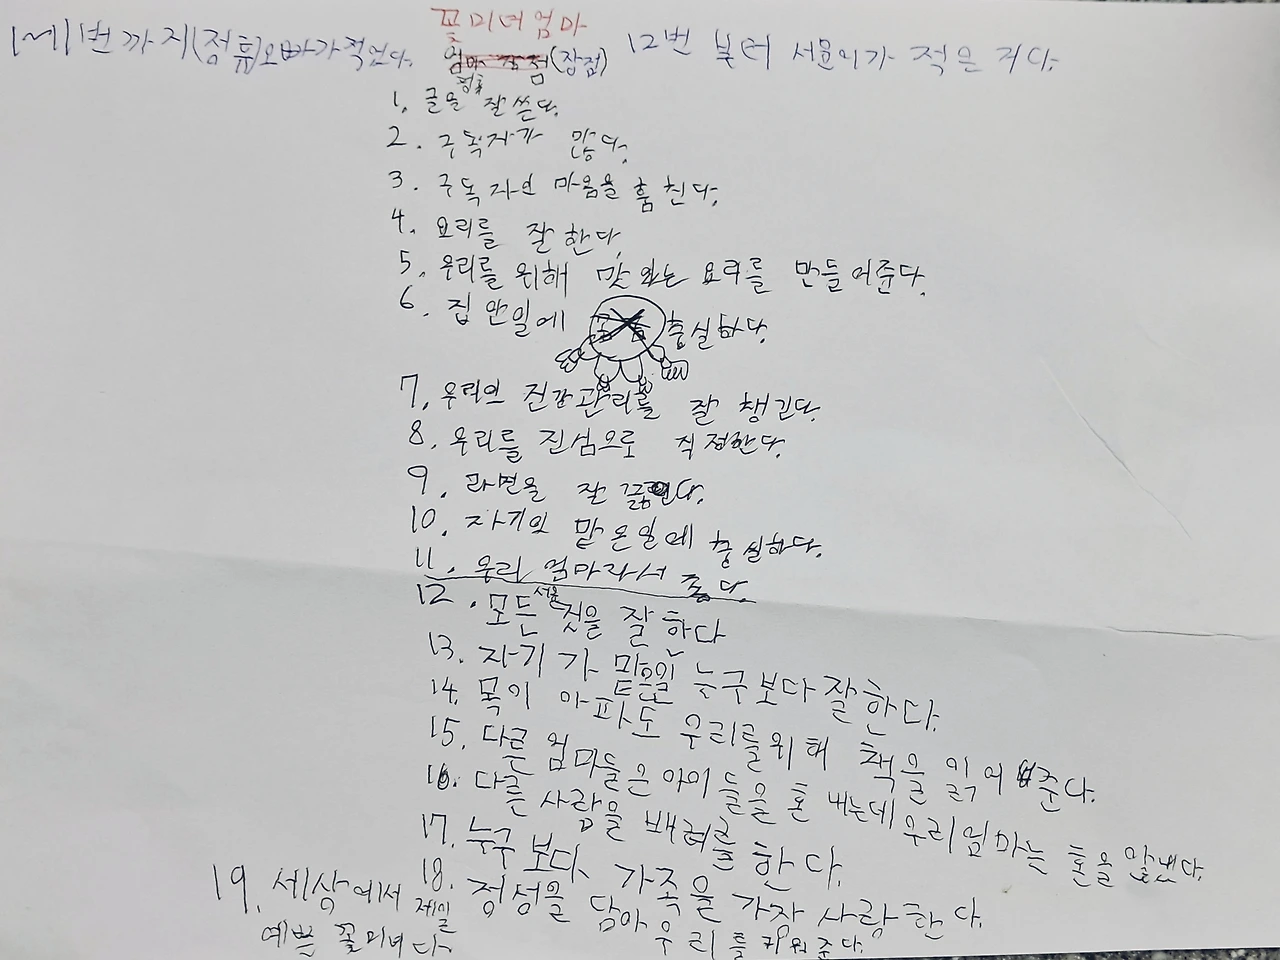 꽃미녀엄마
1~11번까지(정휴)오빠가적었다. (장점) 12번 부터 서윤이가 적은 거다.
정휴
1. 글을 잘쓴다.
2. 구독자가 많다.
3. 구독자의 마음을 훔친다.
4. 요리를 잘한다.
5. 우리를 위해 맛있는 요리를 만들어준다.
6. 집안일에 충실하다.
7. 우리의 건강관리를 잘 챙긴다.
8. 우리를 진심으로 걱정한다.
9. 라면을 잘 끓인다.
10. 자기의 맡은일에 충실하다.
11. 우리 엄마라서 좋다.
서윤
12. 모든 것을 잘한다
13. 자기가 맡은일 누구보다 잘한다.
14. 목이 아파도 우리를위해 책을 읽어준다.
15. 다른 엄마들은아이들을 혼내는데 우리엄마는 혼을 않낸다.
16. 다른 사람을 배려를 한다.
17. 누구보다 가족을 가장 사랑한다.
18. 정성을 담아 우리를 키워준다.
19. 세상에서 제일
예쁜 꽃미녀다.